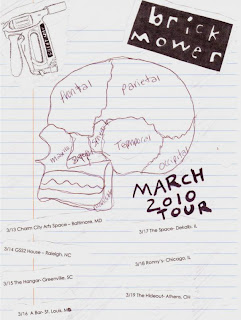 brick
mower
frontal
parietal
Temporal
occipital
MARCH
2010
TOUR
3/13 Charm City Arts Space – Baltimore, MD
3/14 GS22 House – Raleigh, NC
3/15 The Hangar- Greenville, SC
3/16 A Bar- St. Louis, MO
3/17 The Space- IL
3/18 Ronny's- Chicago, IL
3/19 The Hideout- Athens, OH